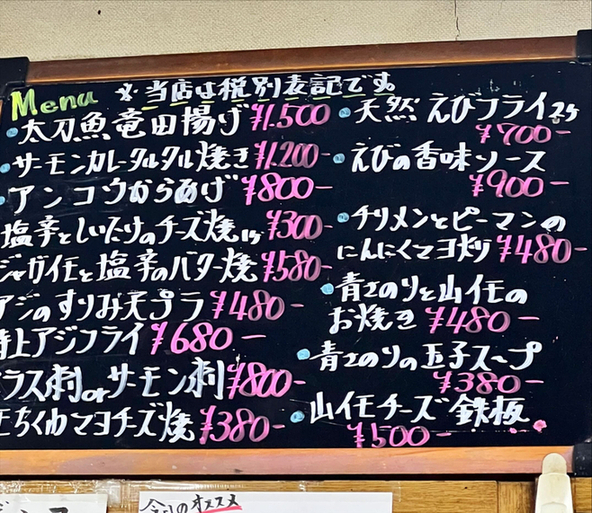 Menu ※当店は税別表記です
太刀魚竜田揚げ ¥1,500
サーモンカレータルタル焼き ¥1,200-
アンコウからあげ ¥800-
塩辛としいたけのチーズ焼 1ケ ¥300-
ジャガイモと塩辛のバター焼 ¥580-
アジのすりみ天プラ ¥480-
特上アジフライ ¥680-
ラス刺orサーモン刺 ¥800-
ちくわマヨチーズ焼 ¥380-
天然 えびフライ 2ケ
¥700-
えびの香味ソース
¥900-
チリメンとピーマンの
にんにくマヨ炒り ¥480-
青さのりと山イモの
お焼き ¥480-
青さのりの玉子スープ
¥380-
山イモチーズ鉄板
¥500-
今日のオススメ